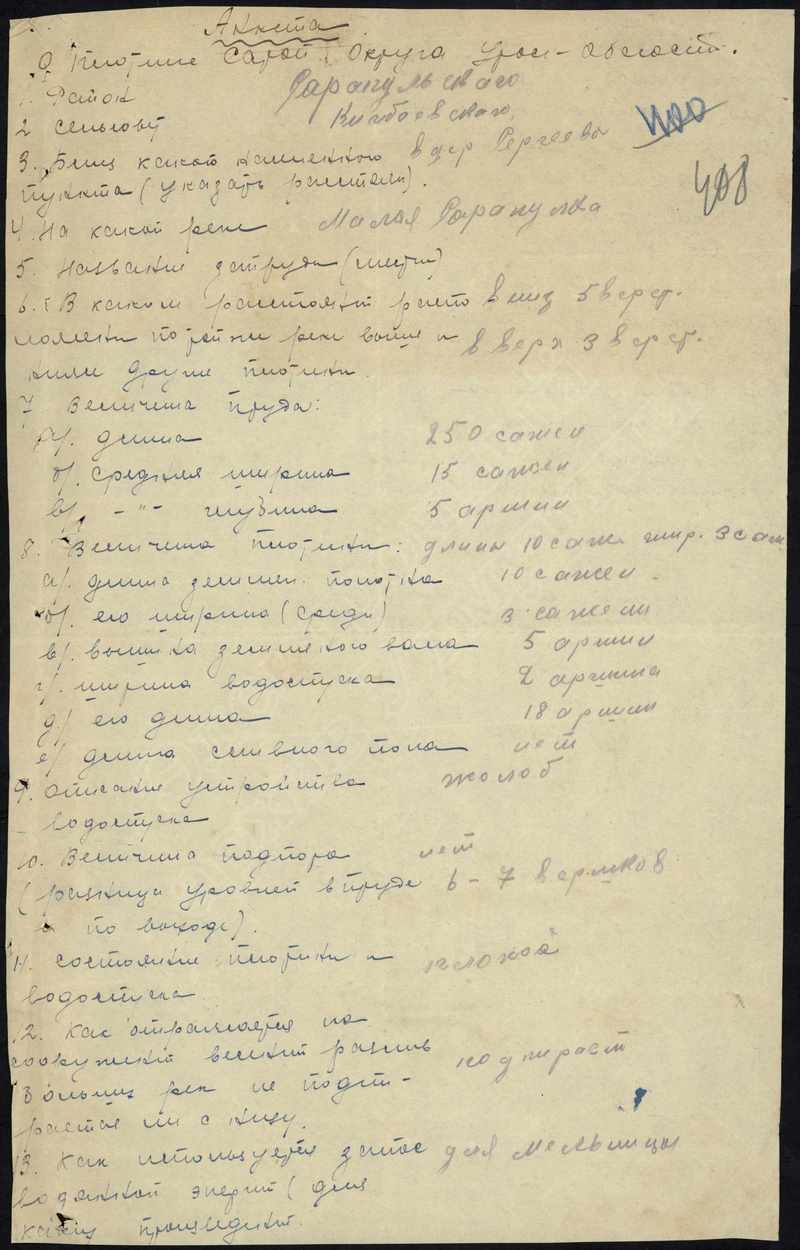 Анкета
О плотине Сарап. Округа Урал-Области.
1. Район Сарапульского
2 сельсовет Кигбаевского
400
3. Близ какого населенного в дер Сергеево
пункта (указать расстоян).
488
4. На какой реке Малая Сарапулка
5. Название запруды (места)
6. В каком расстоянии распо вниз 5 верст.
ложены по этой же реке выше и в верх 3 верст.
ниже другие плотины.
7 Величина пруда:
а). длина 250 сажен
б). средняя ширина 15 сажен
в). -"- глубина 5 аршин
8. Величина плотины: длины 10 саж. шир. 3 саж
а). длина землян. полотна 10 сажен
б). его ширина (средн) 3 сажени
в). высота земляного вала 5 аршин
г). ширина водоспуска 2 аршина
д) его длина 18 аршин
е) длина сливного пола нет
9. Описание устройства жолоб
водоспуска
10. Величина подпора нет
(разница уровней в пруде 6-7 вершков
и по выходе).
11. состояние плотины и плохой
водоспуска
12. Как отражается на
сооружений великий разлив подпирает
больших рек не подпи-
рается ли с низу.
13. Как используется запас для мельницы
водянной энергии (для
каких производств.